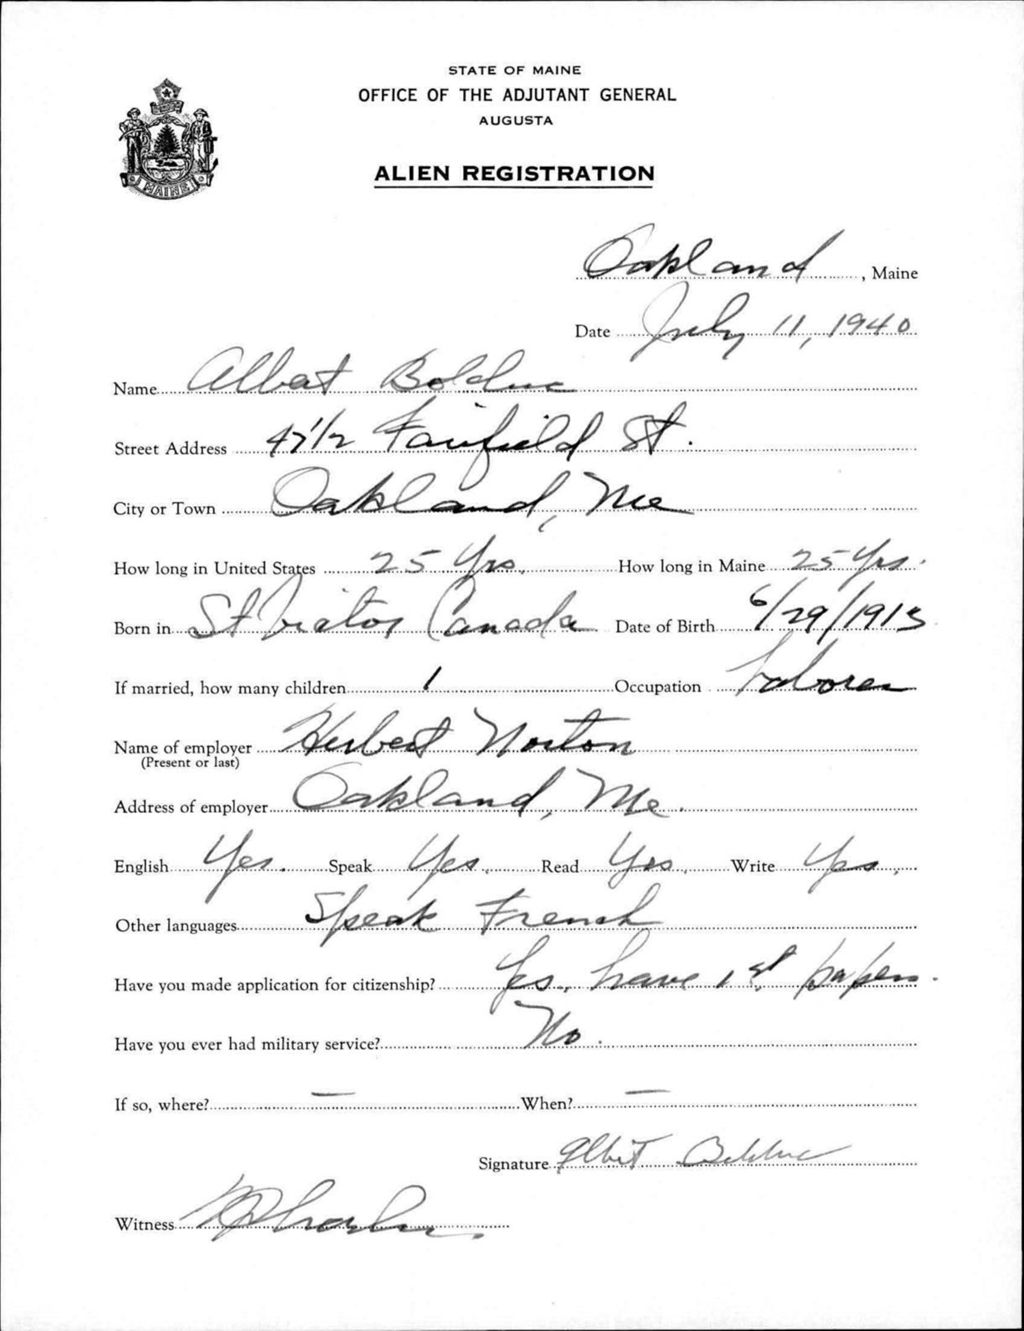 STATE OF MAINE
OFFICE OF THE ADJUTANT GENERAL
AUGUSTA
ALIEN REGISTRATION
MAINE
Oakland, Maine
Date July 11, 1940
Name Albert Bolduc
Street Address 47 1/2 Fairfield St.
City or Town Oakland, Me
How long in United States 25 Yrs. How long in Maine 25 Yrs.
Born in St Victor Canada Date of Birth 6/29/1913
If married, how many children 1 Occupation Laborer
Name of employer Herbert Norton
(Present or last)
Address of employer Oakland, Me.
English Yes. Speak Yes. Read Yes. Write Yes.
Other languages Speak French
Have you made application for citizenship? Yes, have 1st papers.
Have you ever had military service? No.
If so, where? — When? —
Signature Albert Bolduc
Witness